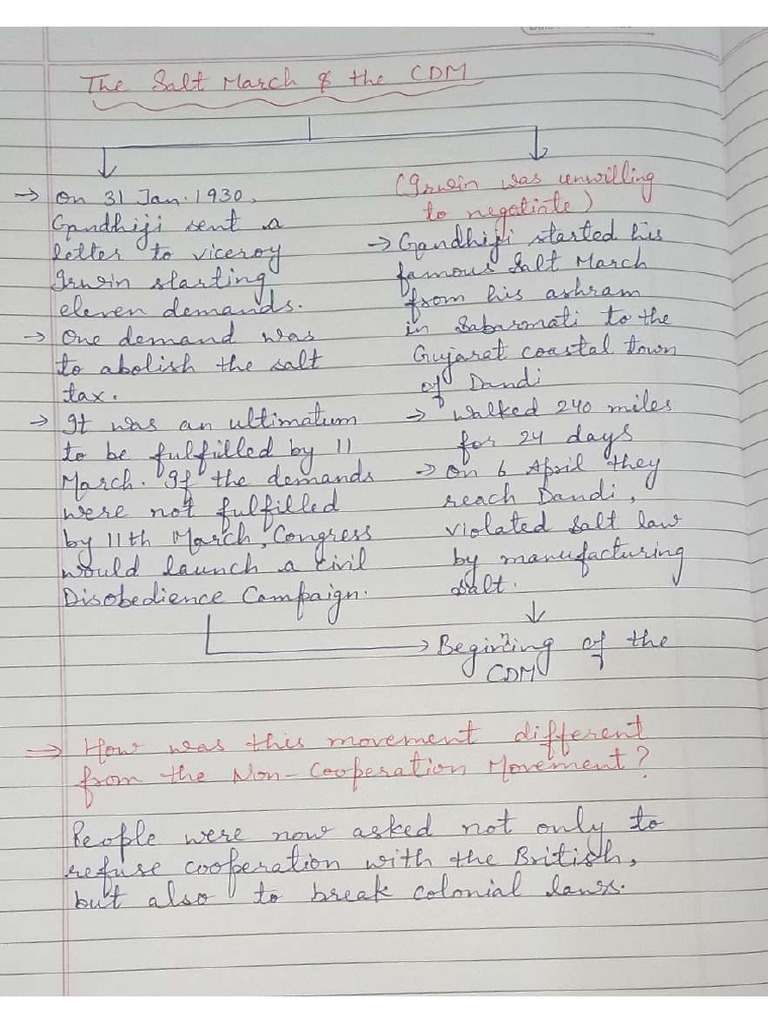 The Salt March & the CDM
→ On 31 Jan. 1930,
Gandhiji sent a
letter to viceroy
Irwin starting
eleven demands.
→ One demand was
to abolish the salt
tax.
→ It was an ultimatum
to be fulfilled by 11
March. If the demands
were not fulfilled
by 11th March, Congress
would launch a civil
Disobedience Campaign.
(Irwin was unwilling
to negotiate)
→ Gandhiji started his
famous Salt March
from his ashram
in Sabarmati to the
Gujarat coastal town
of Dandi
→ walked 240 miles
for 24 days
→ On 6 April they
reach Dandi,
violated salt law
by manufacturing
salt.
Begining of the
CDM
⇒ How was this movement different
from the Non-Cooperation Movement?
People were now asked not only to
refuse cooperation with the British,
but also to break colonial laws.